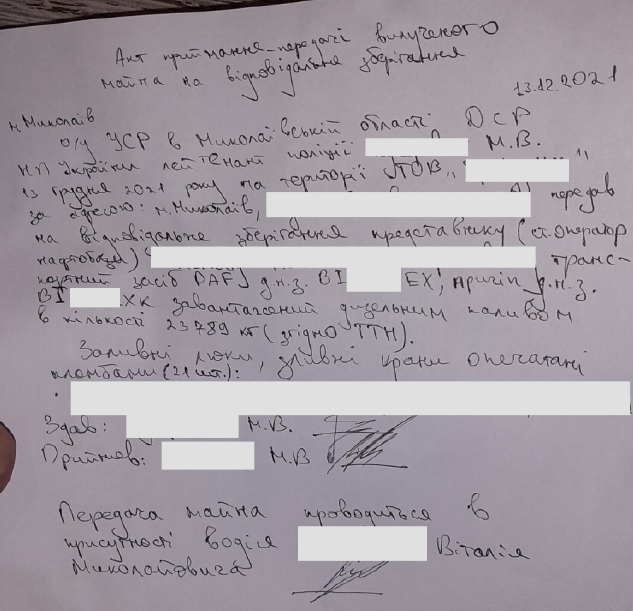 Акт приймання-передачі вилученого
майна на відповідальне зберігання
13.12.2021
м. Миколаїв
о/у УСР в Миколаївській області ДСР
НП України лейтенант поліції М.В.
13 грудня 2021 року на території ТОВ „ "
за адресою: м. Миколаїв, передав
на відповідальне зберігання представнику (ст. оператор
нафтобази) транс-
портний засіб DAF, д.н.з. ВІ ЕХ, причіп д.н.з.
ВІ ХК завантажений дизельним паливом
в кількості 23789 кг (згідно ТТН).
Заливні люки, зливні крани опечатані
пломбами (21 шт.):
Здав: М.В.
Прийняв: М.В
Передача майна проводиться в
присутності водія Віталія
Миколайовича